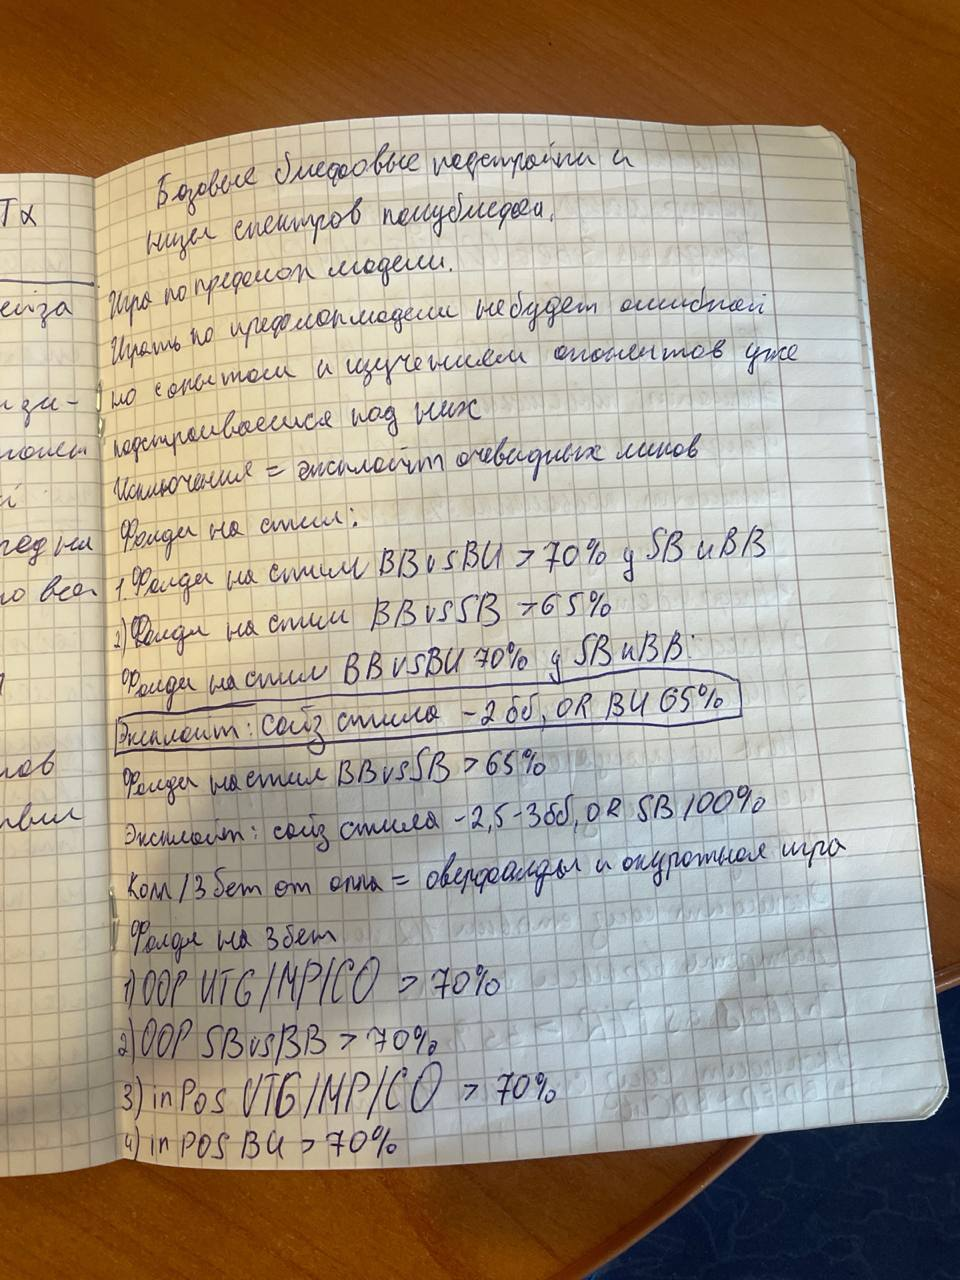 Тх
ейза
изи-
понен
й
ред на
го всех
лов
твии
Базовые блефовые подстройки и
низы спектров полублефа.
Игра по префлоп модели.
Играть по префлопмодели не будет ошибкой
но с опытом и изучением опонентов уже
подстраиваемся под них
Исключения = эксплойт очевидных ликов
Фолды на стил:
1. Фолды на стил BB vs BU > 70% у SB и BB
2) Фолды на стил BB vs SB > 65%
Фолды на стил BB vs BU 70% у SB и BB:
Эксплойт: сайз стила - 2 бб, OR BU 65%
Фолды на стил BB vs SB > 65%
Эксплойт: сайз стила - 2,5 - 3бб, OR SB 100%
Колл/3бет от оппа = оверфолды и акуратная игра
Фолды на 3бет
1) OOP UTG/MP/CO > 70%
2) OOP SB vs BB > 70%
3) in Pos UTG/MP/CO > 70%
4) in POS BU > 70%